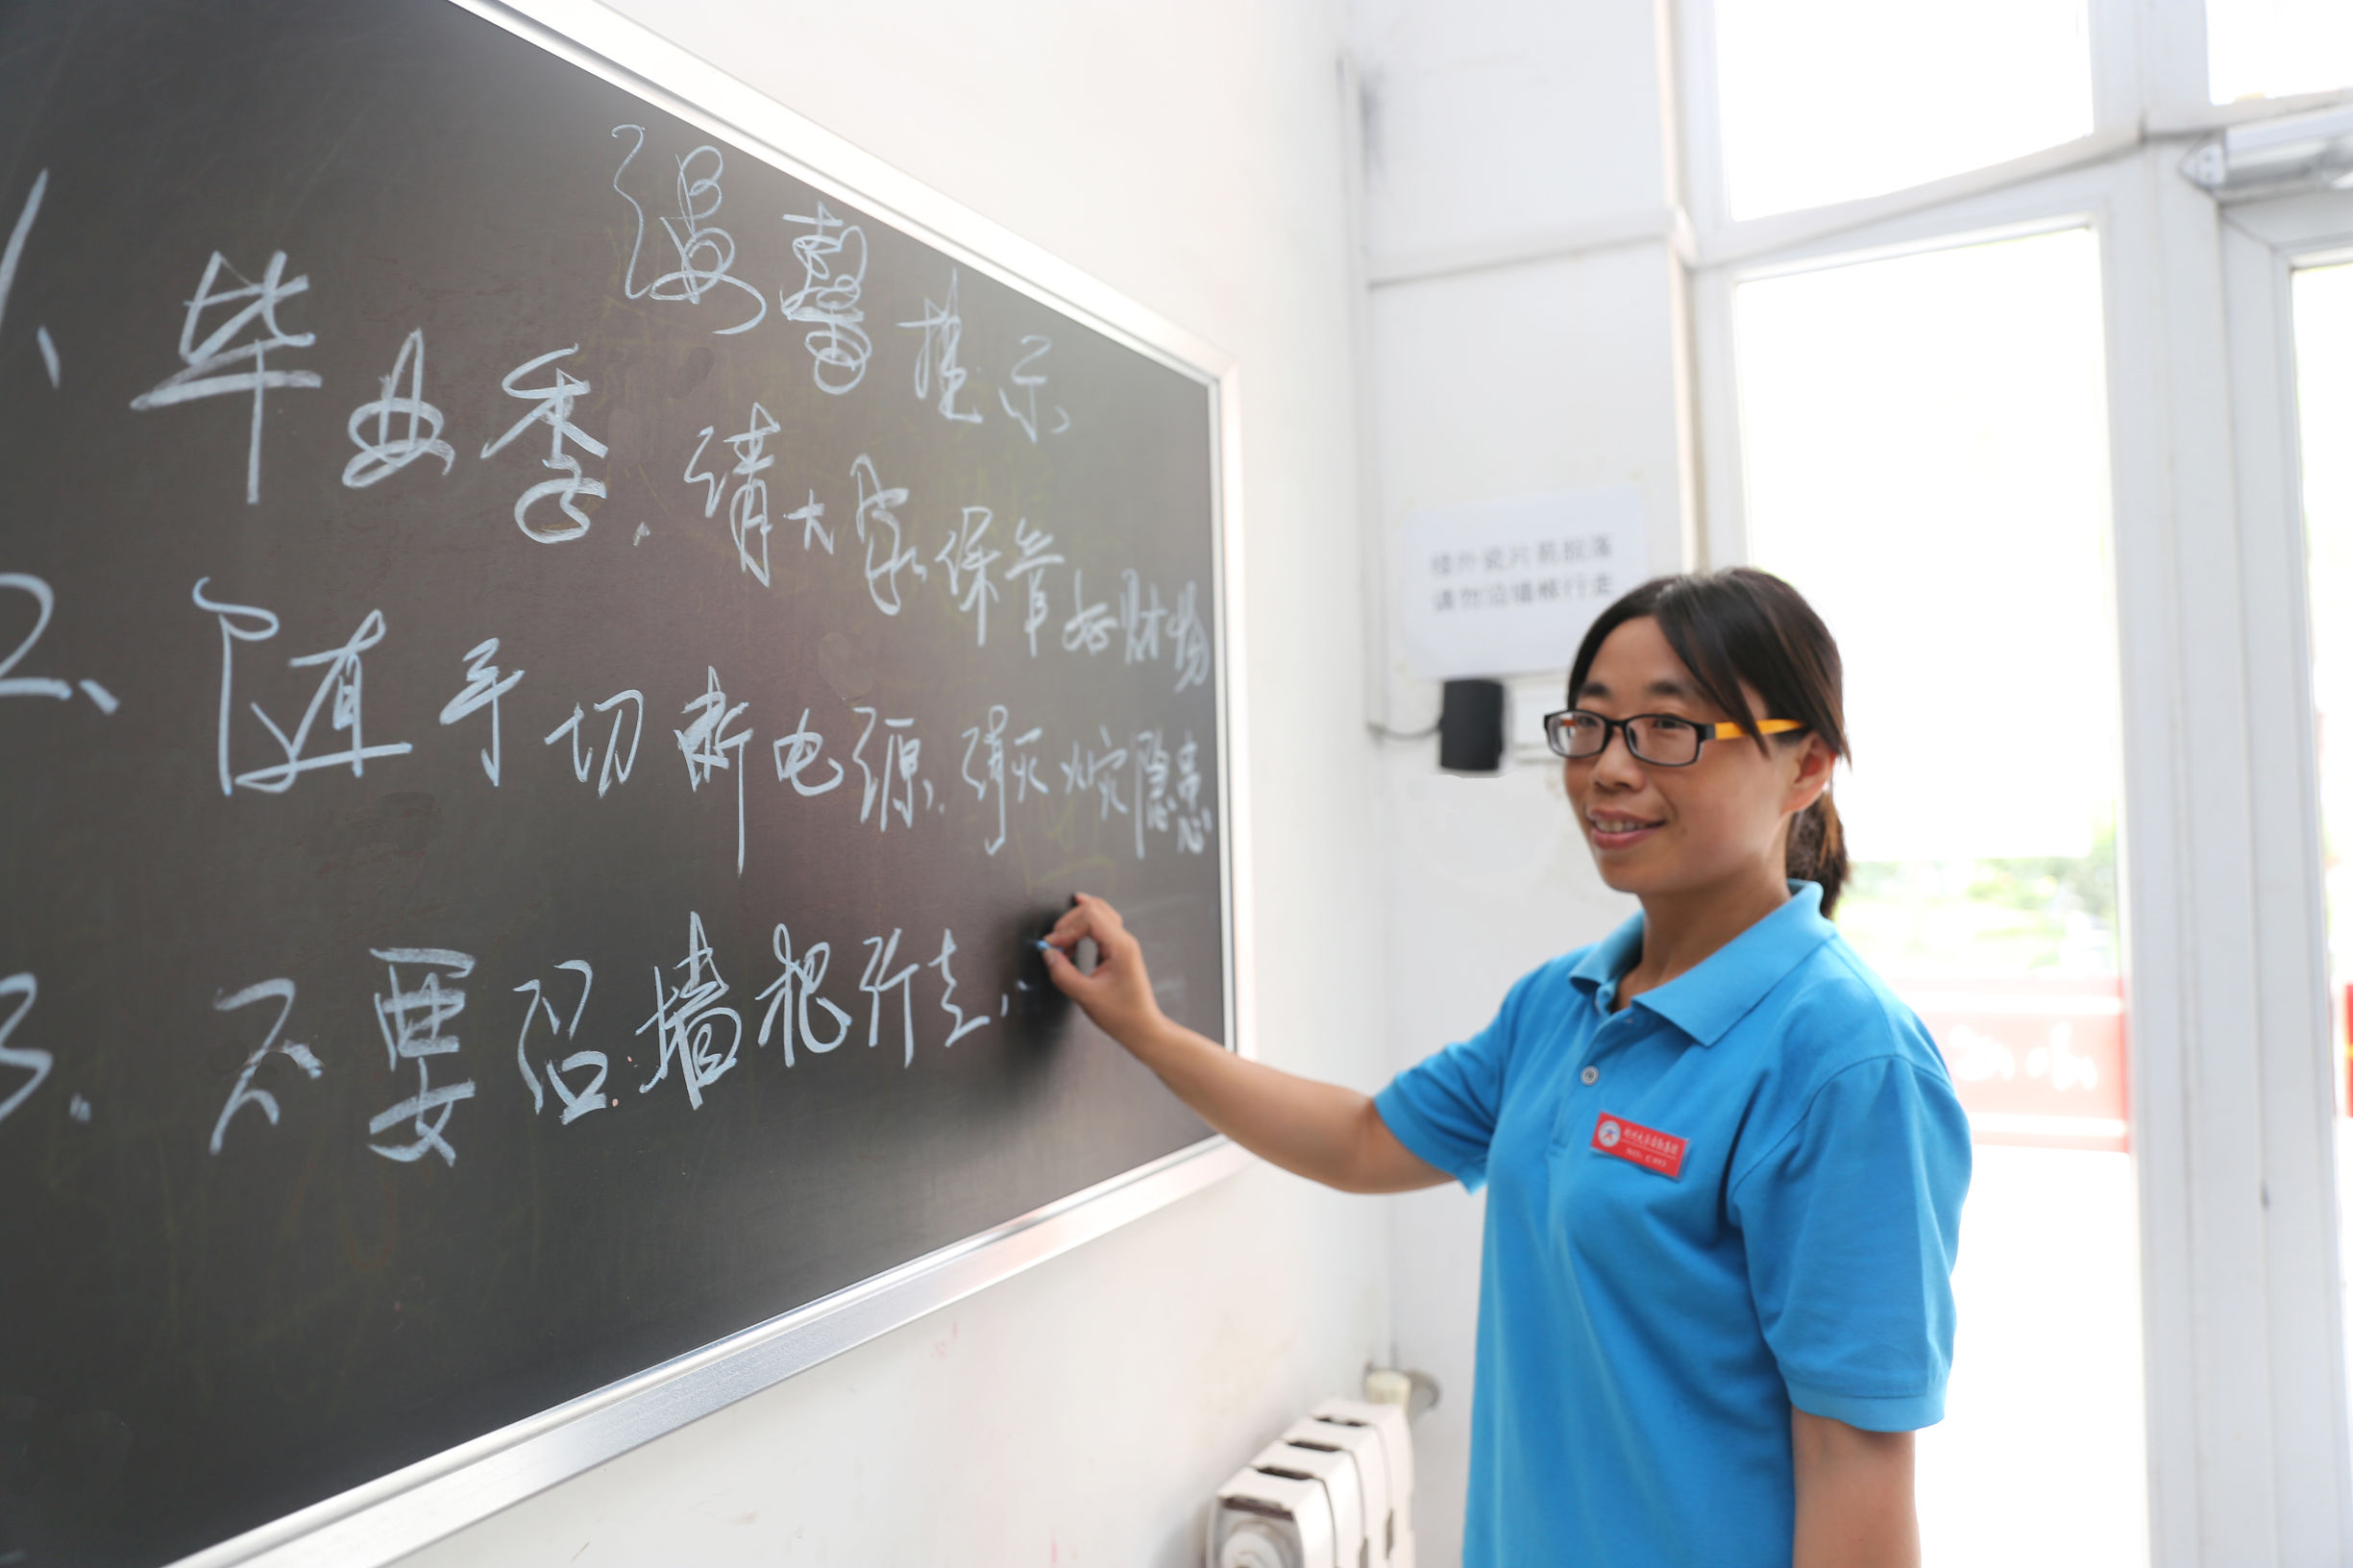 温馨提示
1、毕业季,请大家保管好财物
2、随手切断电源,消灭火灾隐患
3.不要沿墙根行走,
楼外瓷片易脱落
请勿沿墙根行走